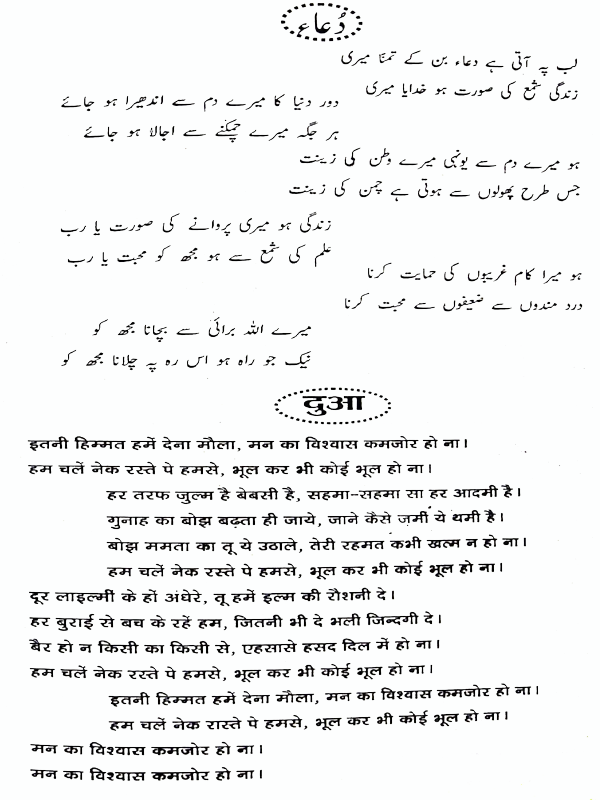 دُعاء
لب پہ آتی ہے دعاء بن کے تمنّا میری
زندگی شمع کی صورت ہو خدایا میری
دور دنیا کا میرے دم سے اندھیرا ہو جائے
ہر جگہ میرے چمکنے سے اجالا ہو جائے
ہو میرے دم سے یونہی میرے وطن کی زینت
جس طرح پھولوں سے ہوتی ہے چمن کی زینت
زندگی ہو میری پروانے کی صورت یا رب
علم کی شمع سے ہو مجھ کو محبت یا رب
ہو میرا کام غریبوں کی حمایت کرنا
درد مندوں سے ضعیفوں سے محبت کرنا
میرے اللہ برائی سے بچانا مجھ کو
نیک جو راہ ہو اس رہ پہ چلانا مجھ کو
दुआ
इतनी हिम्मत हमें देना मौला, मन का विश्वास कमजोर हो ना।
हम चलें नेक रस्ते पे हमसे, भूल कर भी कोई भूल हो ना।
हर तरफ जुल्म है बेबसी है, सहमा-सहमा सा हर आदमी है।
गुनाह का बोझ बढ़ता ही जाये, जाने कैसे ज़मीं ये थमी है।
बोझ ममता का तू ये उठाले, तेरी रहमत कभी खत्म न हो ना।
हम चलें नेक रस्ते पे हमसे, भूल कर भी कोई भूल हो ना।
दूर लाइल्मी के हों अंधेरे, तू हमें इल्म की रौशनी दे।
हर बुराई से बच के रहें हम, जितनी भी दे भली जिन्दगी दे।
बैर हो न किसी का किसी से, एहसासे हसद दिल में हो ना।
हम चलें नेक रस्ते पे हमसे, भूल कर भी कोई भूल हो ना।
इतनी हिम्मत हमें देना मौला, मन का विश्वास कमजोर हो ना।
हम चलें नेक रास्ते पे हमसे, भूल कर भी कोई भूल हो ना।
मन का विश्वास कमजोर हो ना।
मन का विश्वास कमजोर हो ना।